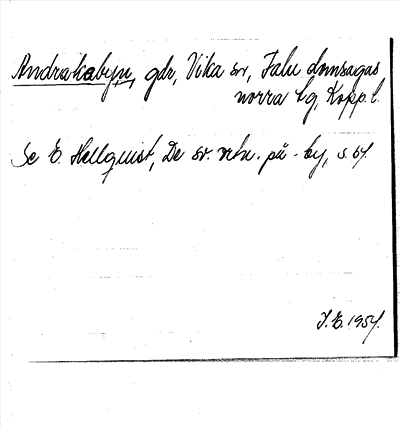 Andrakabyn, gdr, Vika sn, Falu domsagas
norra tg, Kopp. l.
Se E. Hellquist, De sv. ortn. på -by, s. 67.
J.E. 1954.